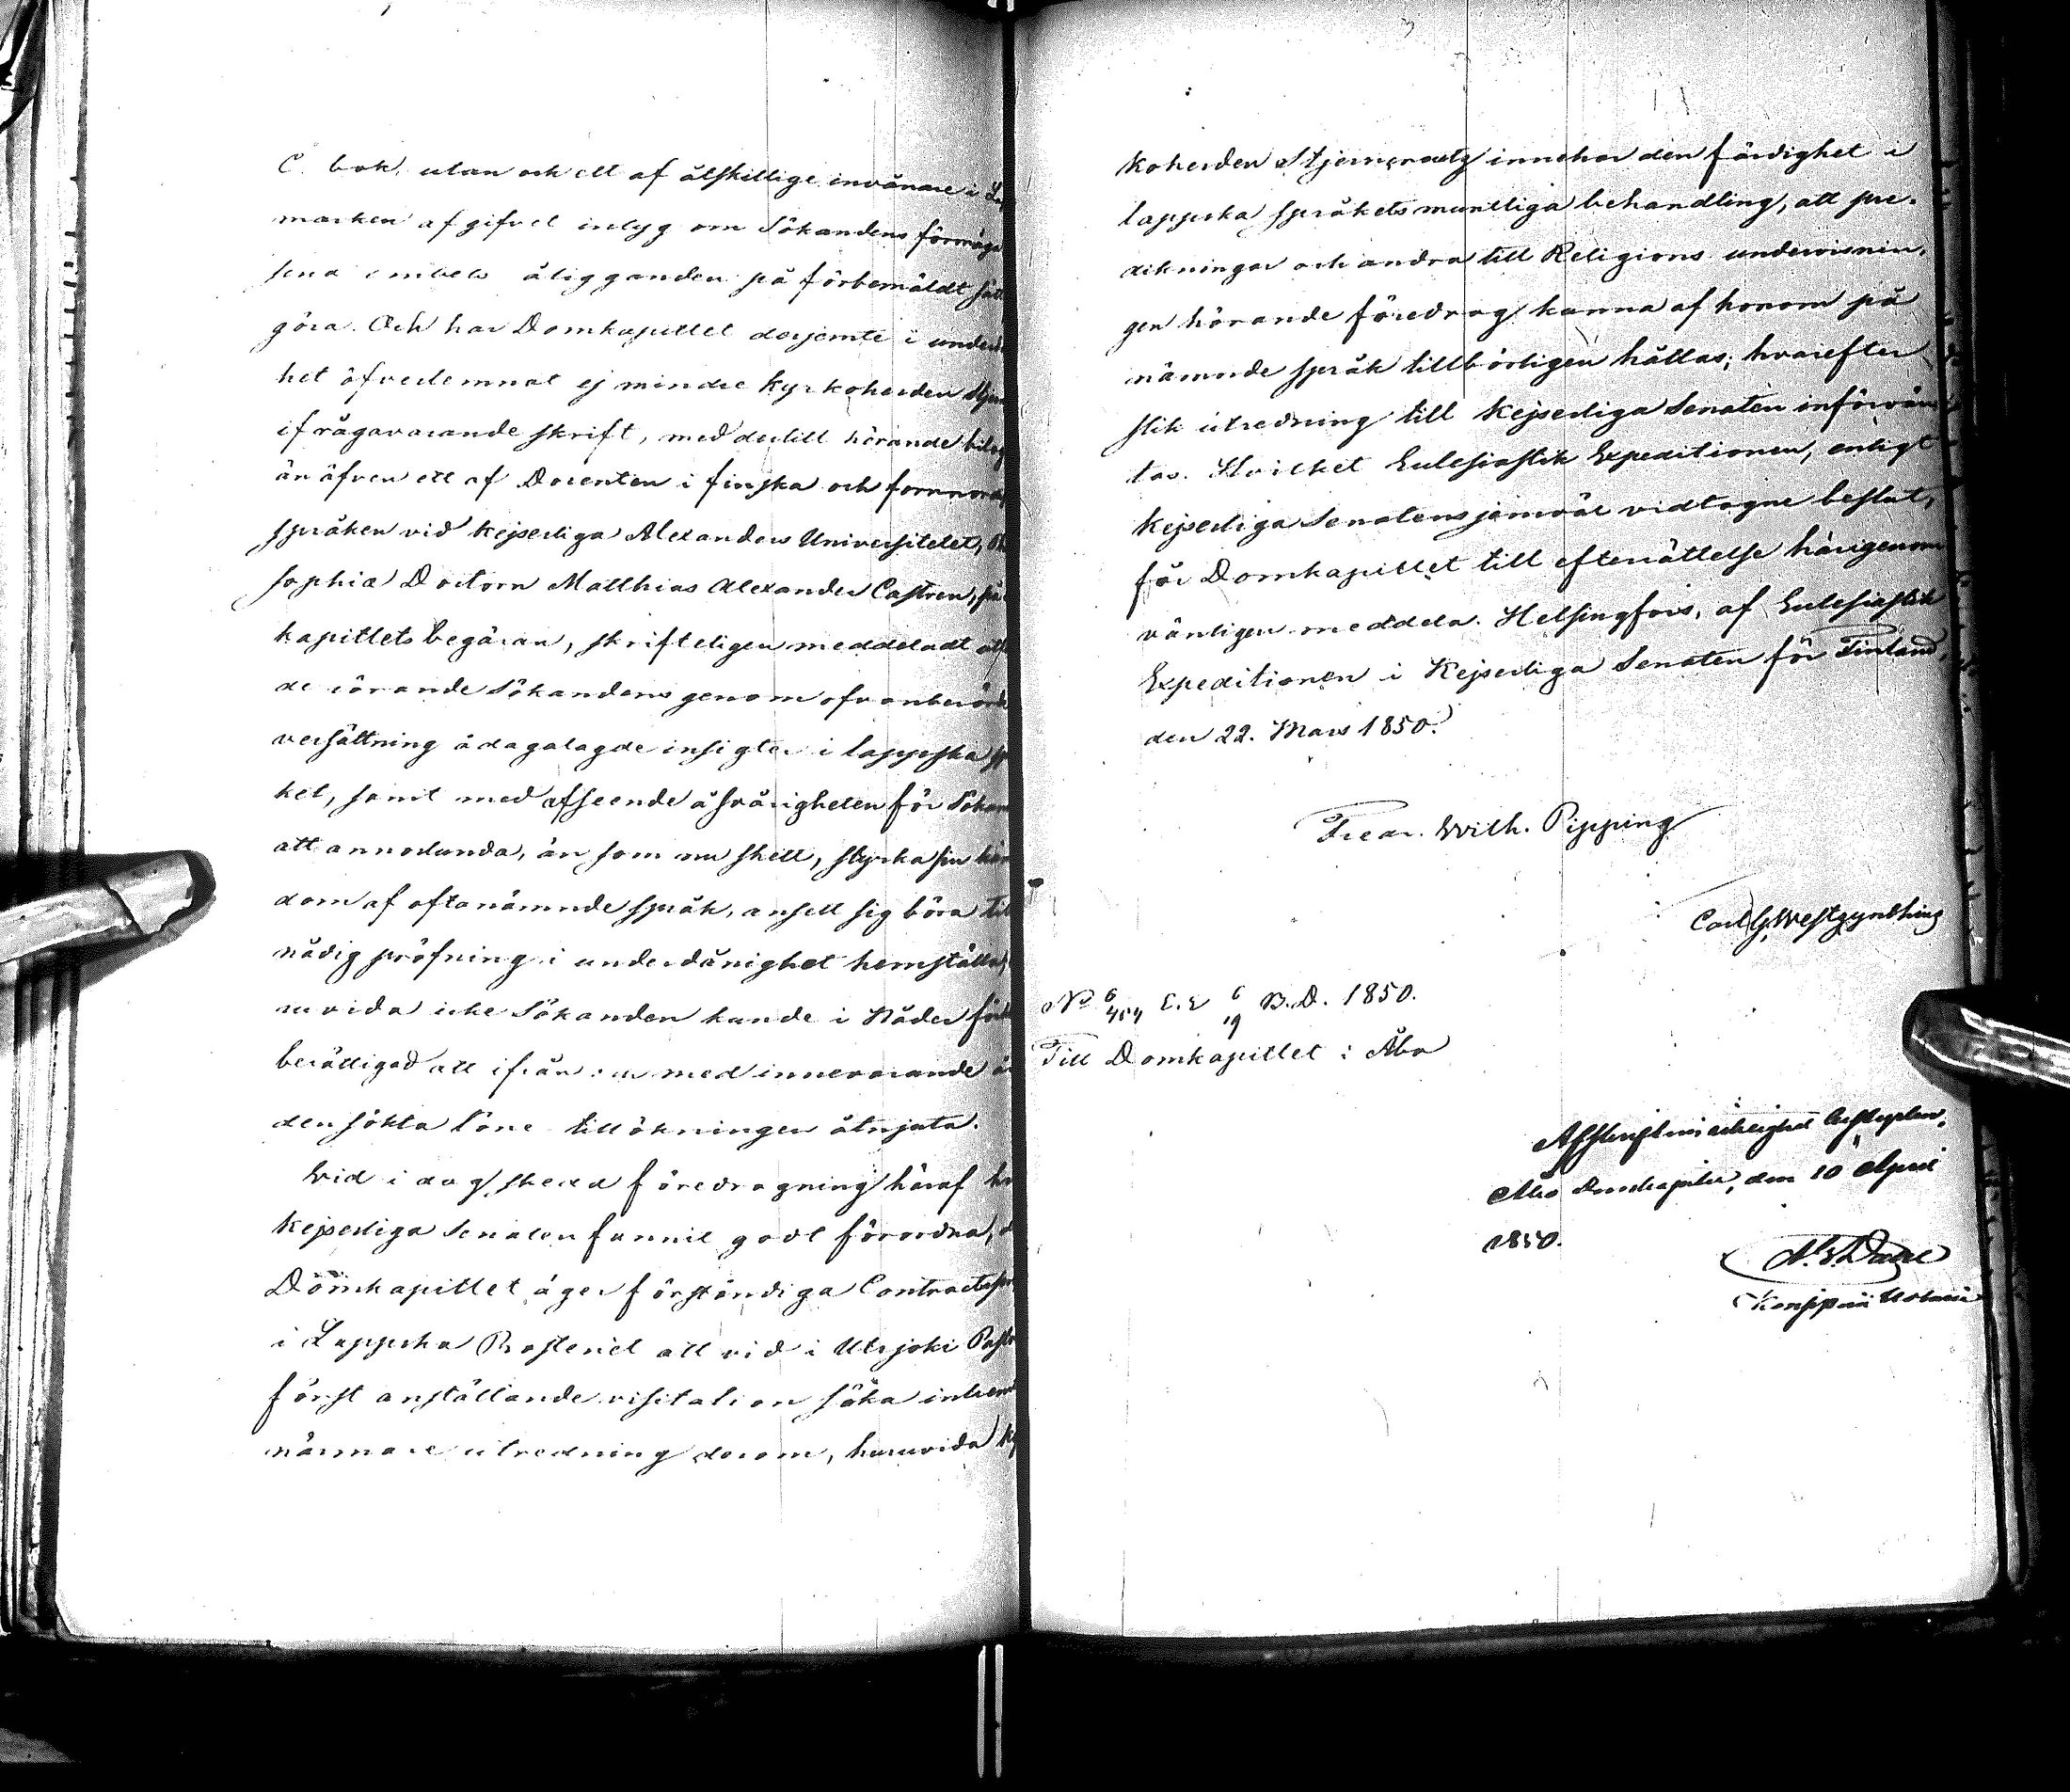 C. bok, utan och ett af åtskillige invånare i
marken afgifvet intyg om Sökandens förmåga
sina embets åligganden på förbemäldt sätt
göra. Och har Domkapitlet derjemte i under
het öfverlemnat ej mindre Kyrkoherden Stjern
ifrågavarande skrift, med dertill hörande bilag
än äfven ett af Docenten i finska och fornnord
språken vid Kejserliga Alexanders Universitetet,
sophiæ Doctorn Matthias Alexander Castren, på
kapitlets begäran, skrifteligen meddeladt
de rörande Sökandens genom ofvanberörde
versättning ådagalagde insigter i lappska sp
ket, samt med afseende å svårigheten för Sökan
att annorlunda, än som nu skett, styrka sin kän
dom af oftanämnde språk, ansett sig böra till
nådig pröfning i underdånighet hemställa,
ruvida icke Sökanden kunde i Nåder förk
berättigad att ifrån och med innevarande år
den sökta löne tillökningen åtnjuta.
Wid i dag skedd föredragning häraf ha
Kejserliga Senaten funnit godt förordna,
Domkapitlet äger förständiga Contractspr
i Lappska Prosteriet att vid i Utsjoki Past
först anställande visitation söka inhemt
närmare utredning derom, huruvida Ky
koherden Stjerncreutz innehar den färdighet i
lappska språkets muntliga behandling, att pre-
dikningar och andra till Religions undervisnin-
gen hörande föredrag kunna af honom på
nämnde språk tillbörligen hållas; hvarefter
slik utredning till Kejserliga Senaten införvän
tas. Hvilket Ecclesiastik Expeditionen, enligt
Kejserliga Senatens jemväl vidtagne beslut,
för Domkapitlet till efterrättelse härigenom
vänligen meddela. Helsingfors, af Ecclesiastik
Expeditionen i Kejserliga Senaten för Finland,
den 22. Mars 1850.
Fredr. Wilh. Pipping
Carl G. Westzynthius
No 6/404 E.E 6/19 B.D. 1850.
Till Domkapitlet i Åbo
Afskriftens riktighet bestyrker.
Åbo Domkapitel, den 10 April
1850.
Notarie